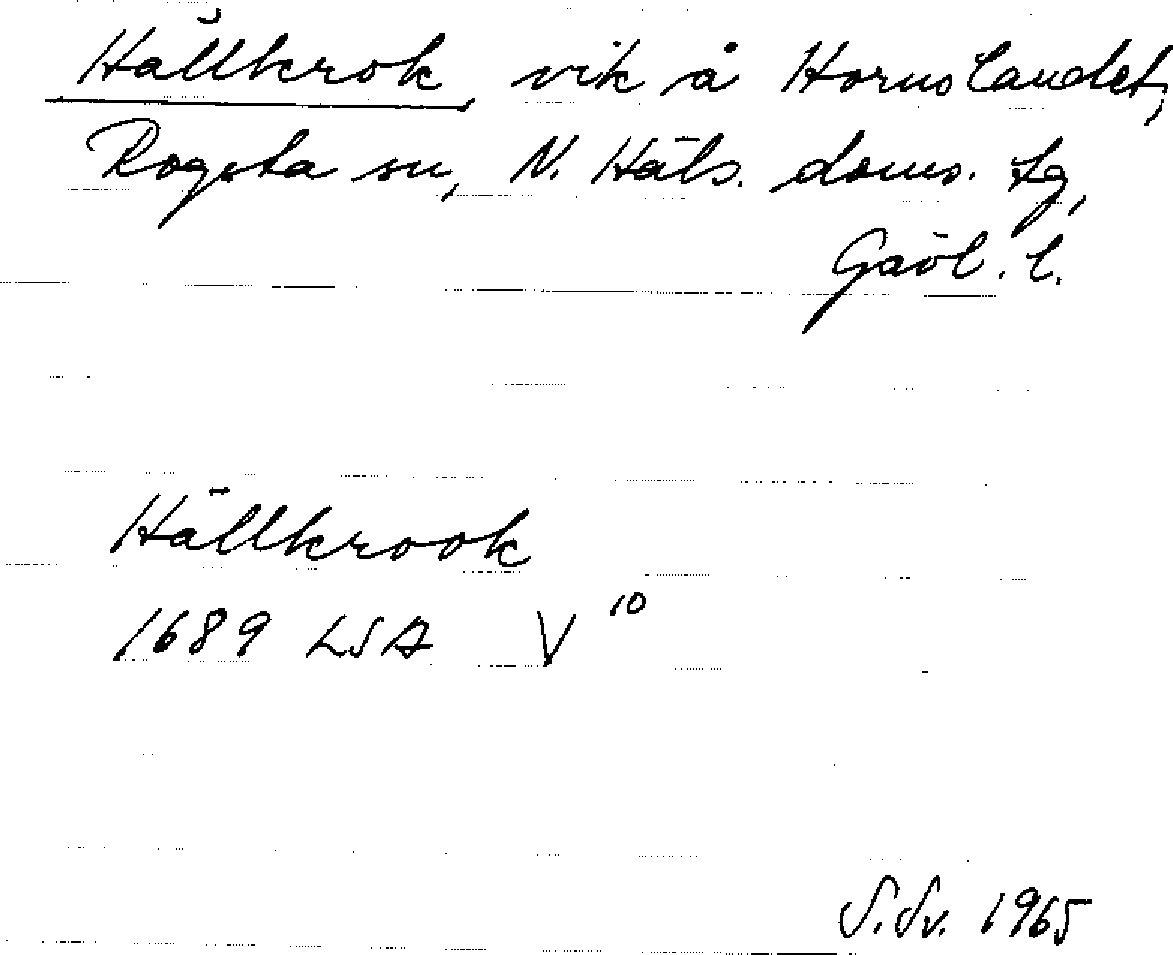 Hällkrok, vik å Hornslandet,
Rogsta sn, N. Häls. doms. tg,
Gävl. l.
Hällkrook
1689 LSA V 10
S. Sv. 1965